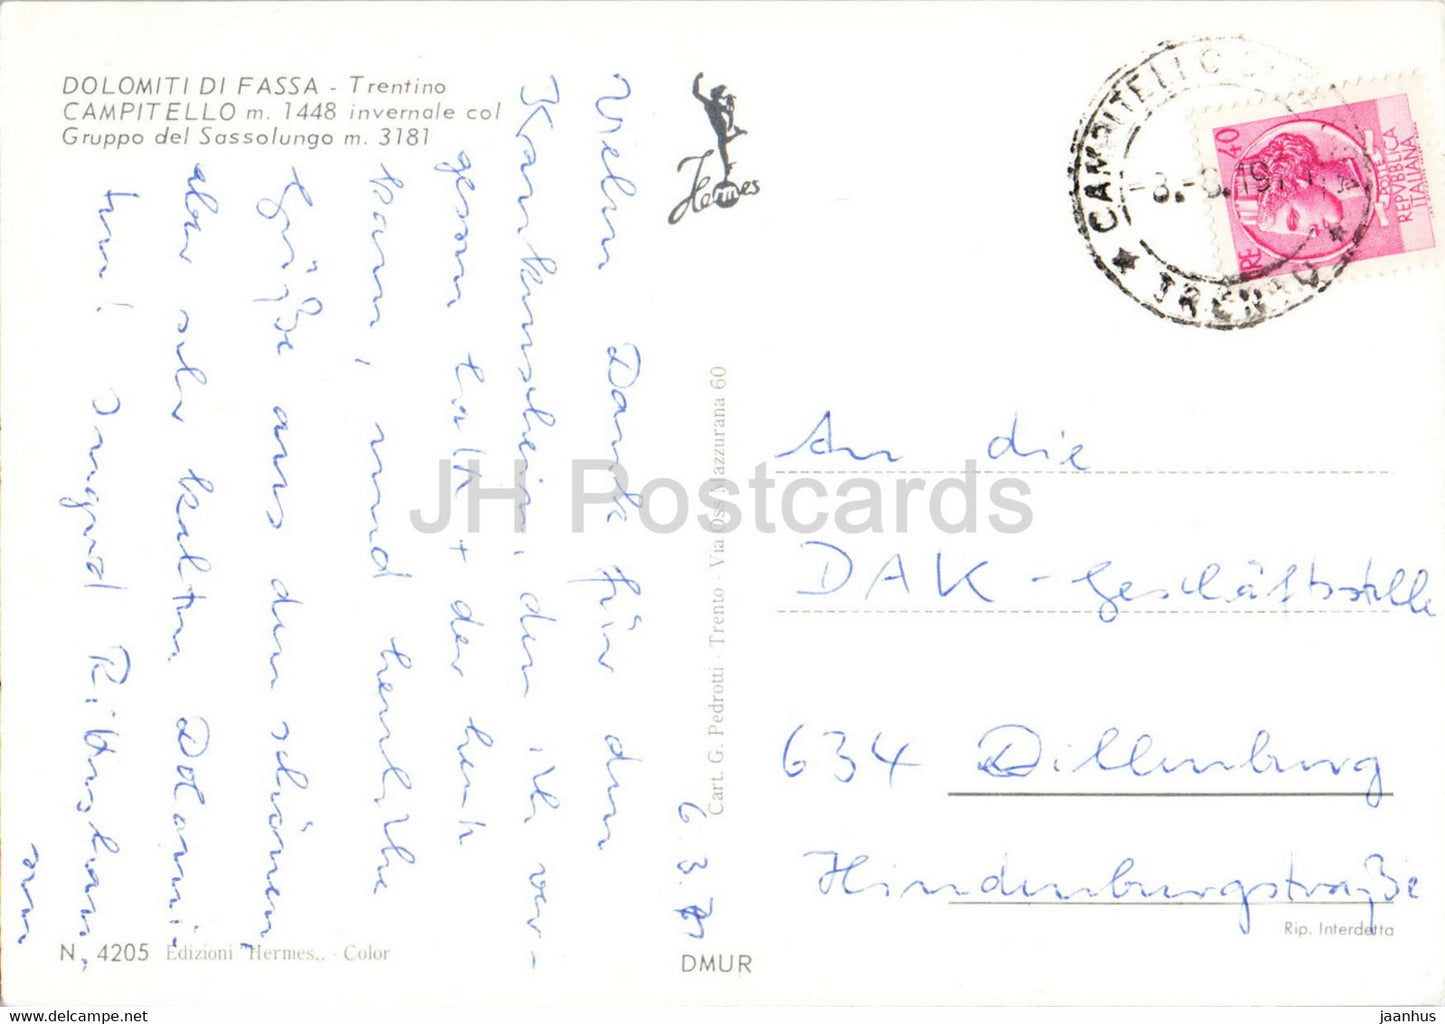 DOLOMITI DI FASSA - Trentino
CAMPITELLO m. 1448 invernale col
Gruppo del Sassolungo m. 3181
Hermes
CAMPITELLO
TRENTO
40
LIRE
POSTE
REPVBBLICA
ITALIANA
6.3.71
Vielen Dank für den
Krankenschein, den ich ver-
gessen hatte + der heute
kam, und herzliche
Grüße aus den schönen,
aber sehr kalten Dolomi-
ten! Ingrid
An die
DAK - Geschäftsstelle
634 Dillenburg
Hindenburgstraße
Cart. G. Pedrotti - Trento - Via Oss Mazzurana 60
JH Postcards
N. 4205 Edizioni "Hermes„ - Color
DMUR
Rip. Interdetta
www.hippostcard.com
jaanhus